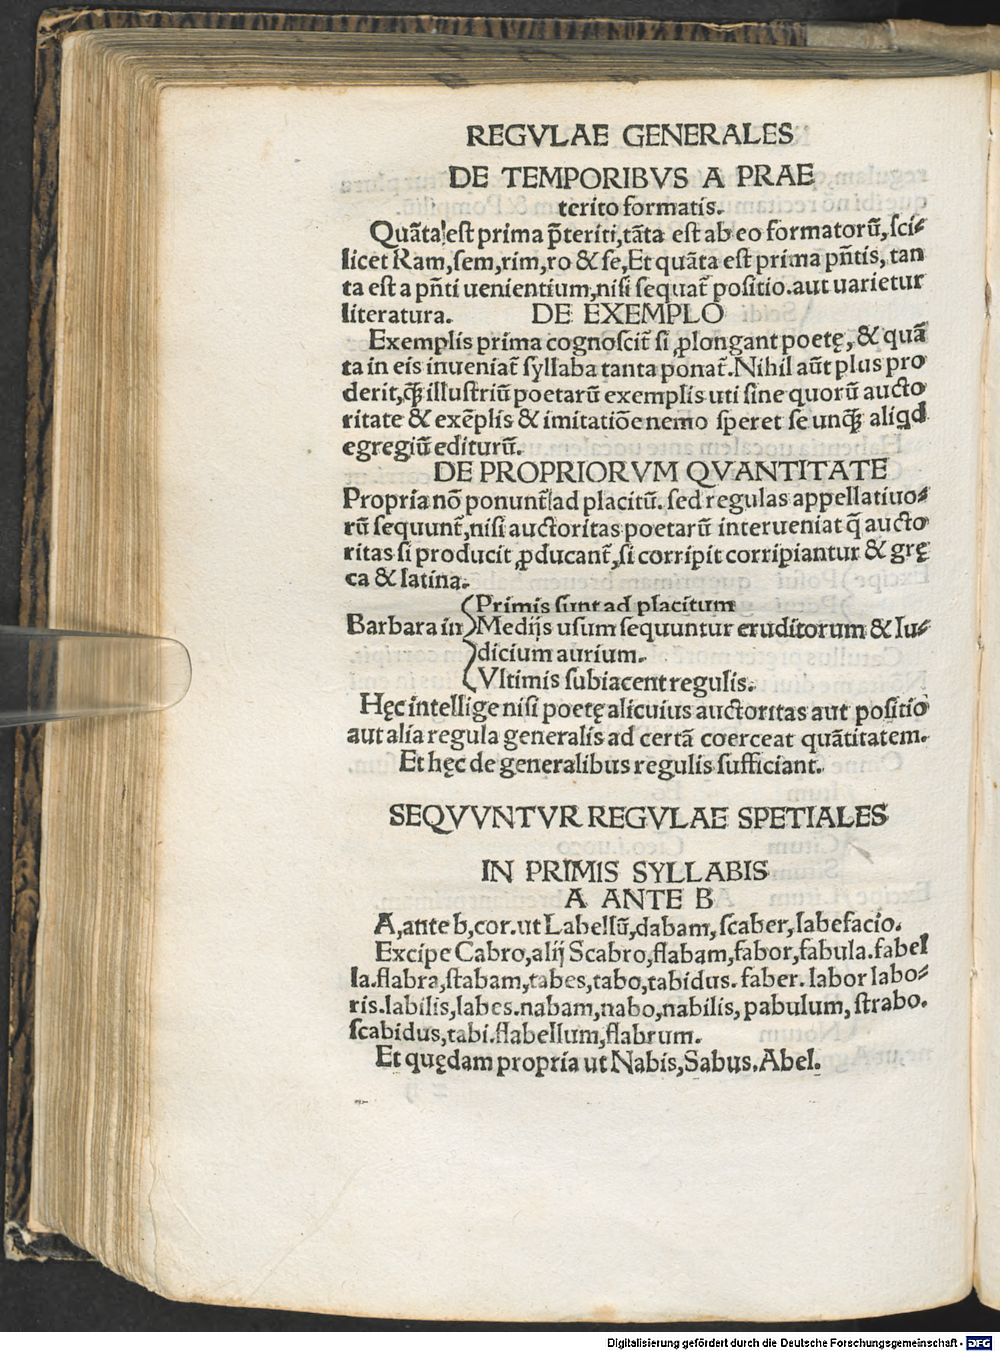 REGVLAE GENERALES
DE TEMPORIBVS A PRAE
terito formatis.
Quãta est prima p̃teriti, tãta est ab eo formatorũ, sci⸗
licet Ram, sem, rim, ro & se, Et quãta est prima pñtis, tan
ta est a pñti uenientium, nisi sequat̃ positio. aut uarietur
literatura. DE EXEMPLO
Exemplis prima cognoscit̃ si ꝓlongant poetę, & quã
ta in eis inueniat̃ syllaba tanta ponat̃. Nihil aũt plus pro
derit, ꝙ̃ illustriũ poetarũ exemplis uti sine quorũ aucto
ritate & exẽplis & imitatiõe nemo speret se unꝙ̃ aliqd
egregiũ editurũ.
DE PROPRIORVM QVANTITATE
Propria nõ ponunt̃ ad placitũ. sed regulas appellatiuo⸗
rũ sequunt̃, nisi auctoritas poetarũ interueniat q̃ aucto
ritas si producit ꝓducant̃, si corripit corripiantur & grę
ca & latina.
Primis sunt ad placitum
Barbara in Medijs usum sequuntur eruditorum & Iu⸗
dicium aurium.
Vltimis subiacent regulis.
Hęc intellige nisi poetę alicuius auctoritas aut positio
aut alia regula generalis ad certã coerceat quãtitatem.
Et hęc de generalibus regulis sufficiant.
SEQVVNTVR REGVLAE SPETIALES
IN PRIMIS SYLLABIS
A ANTE B
A, ante b, cor. ut Labellũ, dabam, scaber, labefacio.
Excipe Cabro, alij Scabro, flabam, fabor, fabula. fabel
la. flabra, stabam, tabes, tabo, tabidus. faber. labor labo⸗
ris. labilis, labes. nabam, nabo, nabilis, pabulum, strabo.
scabidus, tabi. flabellum, flabrum.
Et quędam propria ut Nabis, Sabus. Abel.
Digitalisierung gefördert durch die Deutsche Forschungsgemeinschaft - DFG